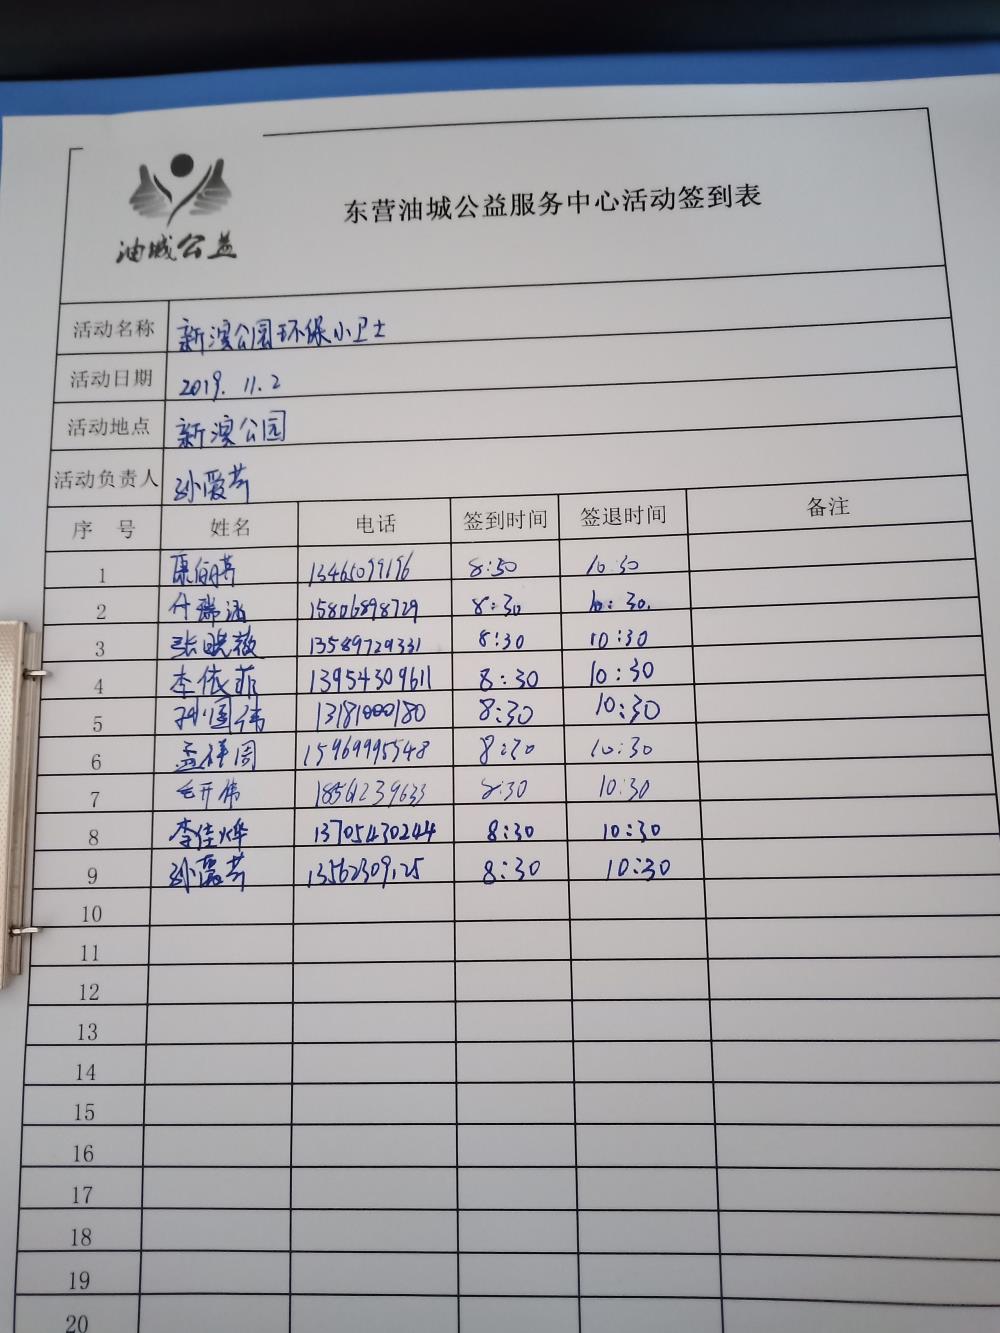 油城公益
东营油城公益服务中心活动签到表
活动名称 新滨公园环保小卫士
活动日期 2019.11.2
活动地点 新滨公园
活动负责人 孙爱芹
序 号 姓名 电话 签到时间 签退时间 备注
1 13465099196 8:30 10:30
2 15806898729 8:30 10:30.
3 张晓薇 13589729331 8:30 10:30
4 李依菲 13954309611 8:30 10:30
5 13181000180 8:30 10:30
6 孟祥周 15969995548 8:30 10:30
7 毛开伟 18561239633 8:30 10:30
8 李佳烨 13705430244 8:30 10:30
9 孙爱芹 13562309125 8:30 10:30
10
11
12
13
14
15
16
17
18
19
20